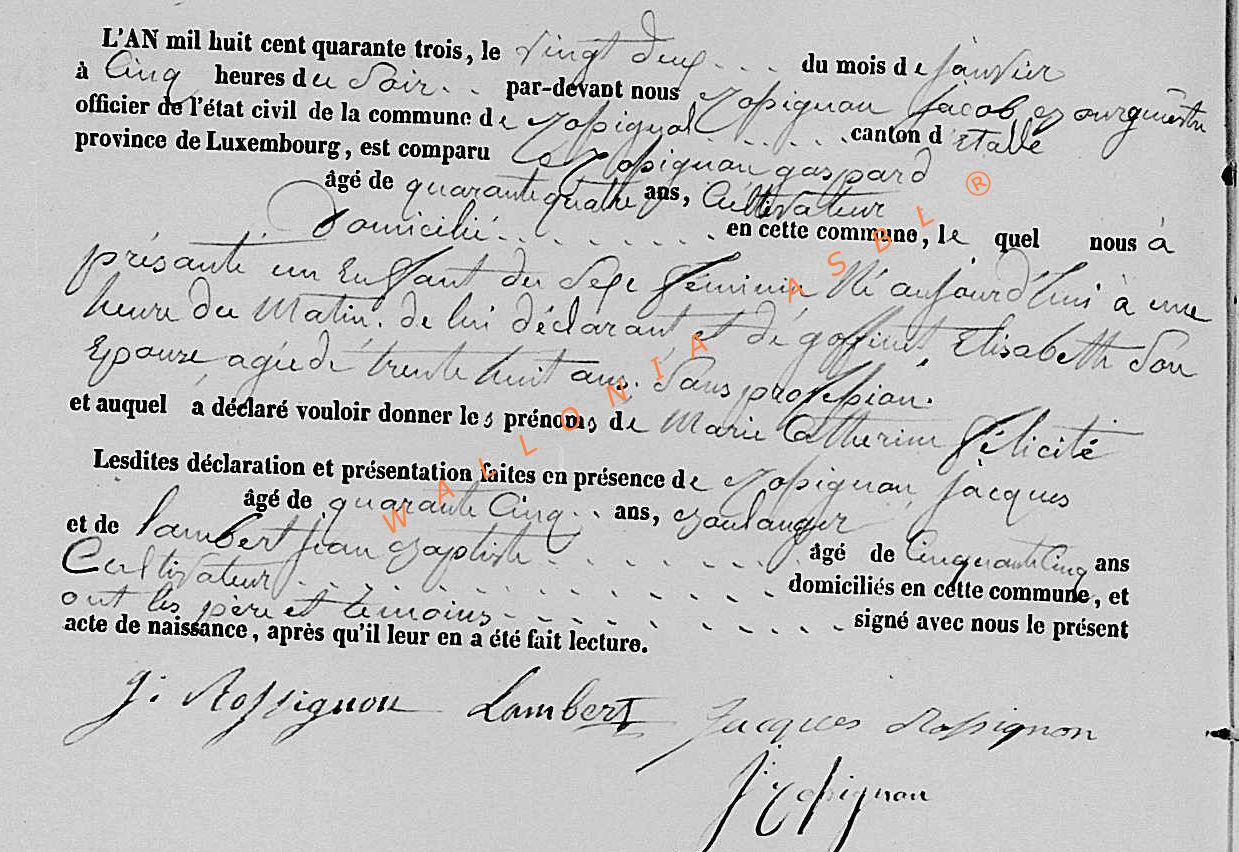 L'AN mil huit cent quarante trois, le vingt deux . . . du mois de janvier
à Cinq heures du Soir . . par-devant nous Rossignon Jacob Bourguemestre
officier de l'état civil de la commune de Rossignol . . . . . canton d'Etalle
province de Luxembourg, est comparu Le Rossignon gaspard
âgé de quarante quatre ans, Cultivateur
Domicilié . . . . . . . . . en cette commune, le quel nous à
présanté un Enfant du Sexe féminin Né aujourd'hui à une
heure du Matin. de lui déclarant et de goffinet, Elisabeth Son
Epouze, agée de trente huit ans. Sans profession.
et auquel a déclaré vouloir donner les prénoms de Marie Catherine Félicité
Lesdites déclaration et présentation faites en présence de Rossignon Jacques
âgé de quarante Cinq . . ans, Boulanger
et de lambert jean Baptiste . . . . . . . . âgé de Cinquante Cinq ans
Cultivateur . . . . . . . . . . . . . domiciliés en cette commune, et
ont les père et témoins . . . . . . . . . . signé avec nous le présent
acte de naissance, après qu'il leur en a été fait lecture.
g: Rossignon Lambert Jacques Rossignon
J Rossignon
WALLONIA ASBL ®